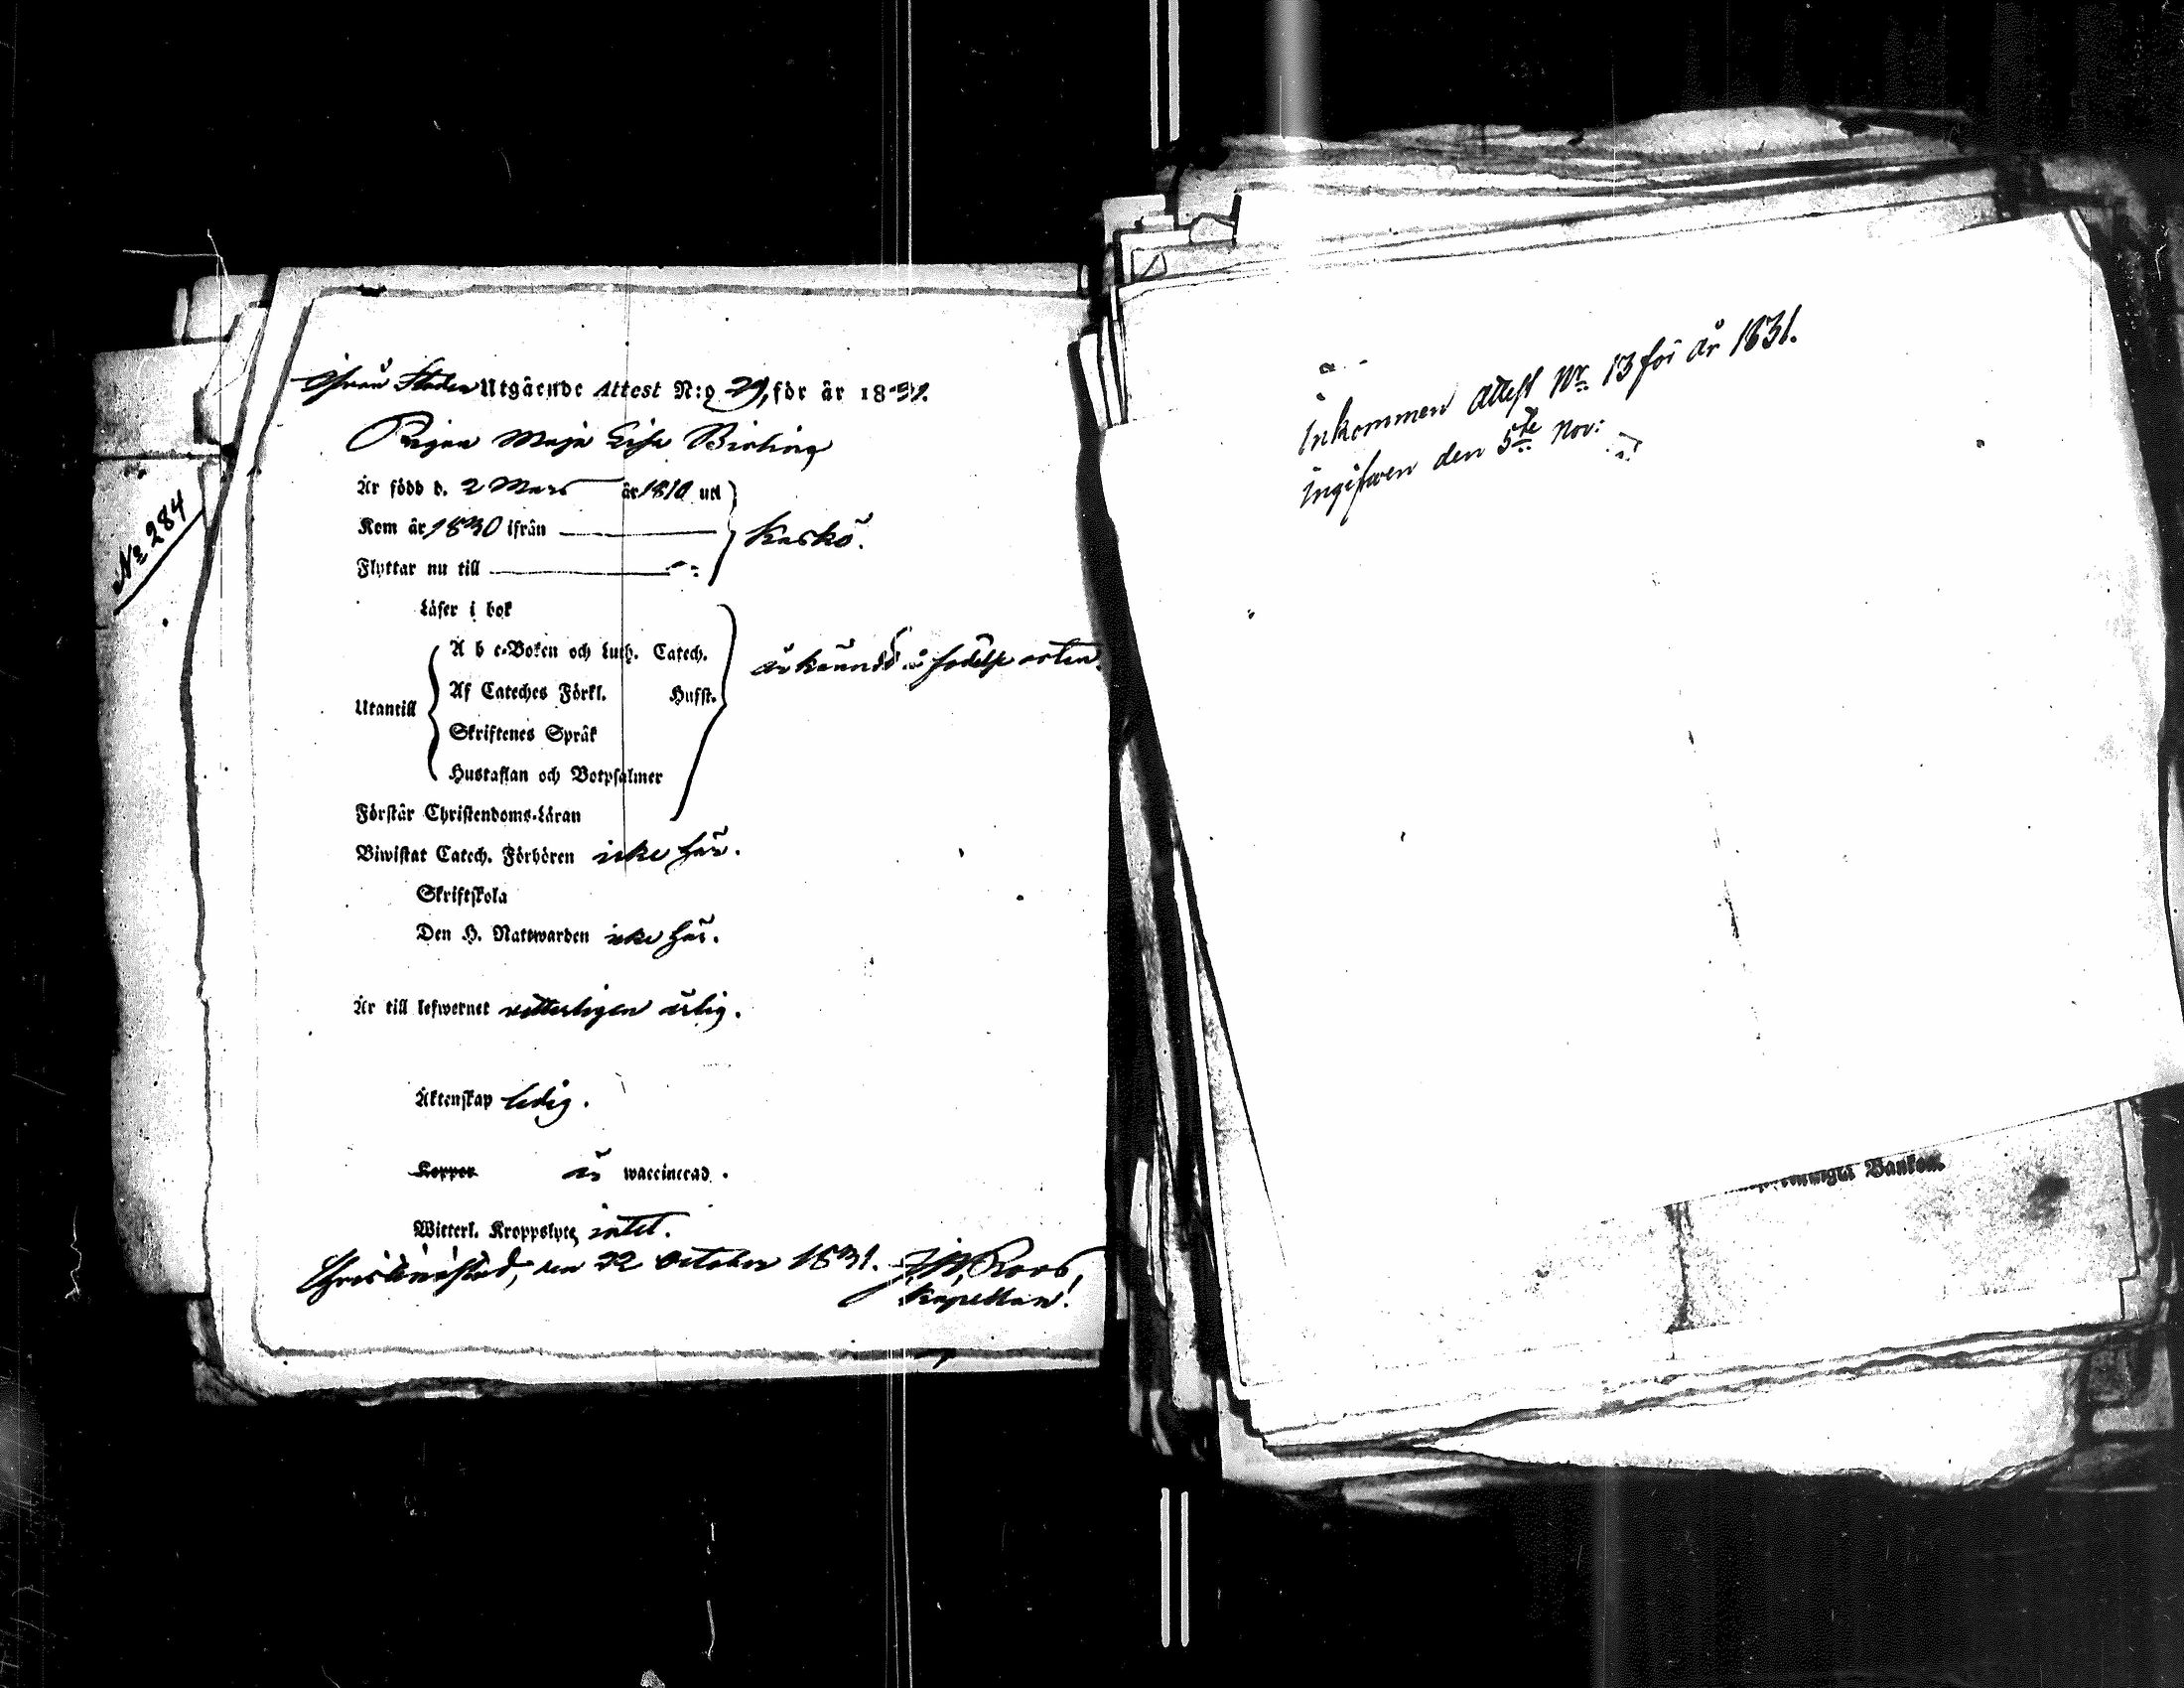 No 284
ifrån Staden Utgående Attest N:o 29, för år 1831.
Pigan Maja Lisa Birling
Är född d. 2 Mars år 1810 uti
Kom år 1830 ifrån
Kaskö.
Flyttar nu till
Läser i bok
A b c-Boken och Luth. Catech.
är kunnd å födelse orten.
Af Cateches Förkl. Hufst.
Utantill
Skriftenes Språk
Hustaflan och Botpsalmer
Förstår Christendoms-Läran
Biwistat Catech. Förhören icke här.
Skriftskola
Den H. Nattwarden icke här.
Är till lefwernet vitterligen ärlig.
Äktenskap ledig.
Koppor är waccinerad.
Witterl. Kroppslyte intet.
Christinestad, den 22 October 1831. Roos,
Kapellan.
Inkommen Attest Nr. 13 för år 1831.
Ingifwen den 5te Nov:
Banken.